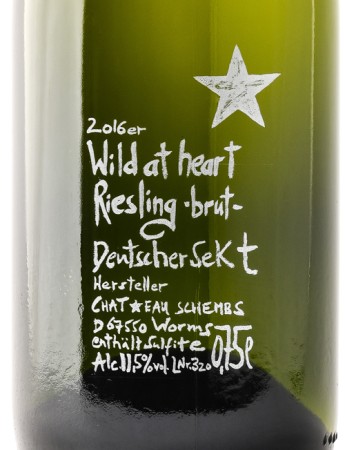 2016er
Wild at heart
Riesling -brut-
Deutscher Sekt
Hersteller
CHAT★EAU SCHEMBS
D 67550 Worms
enthält Sulfite 0,75l
Alc.11,5%vol. LNr.320